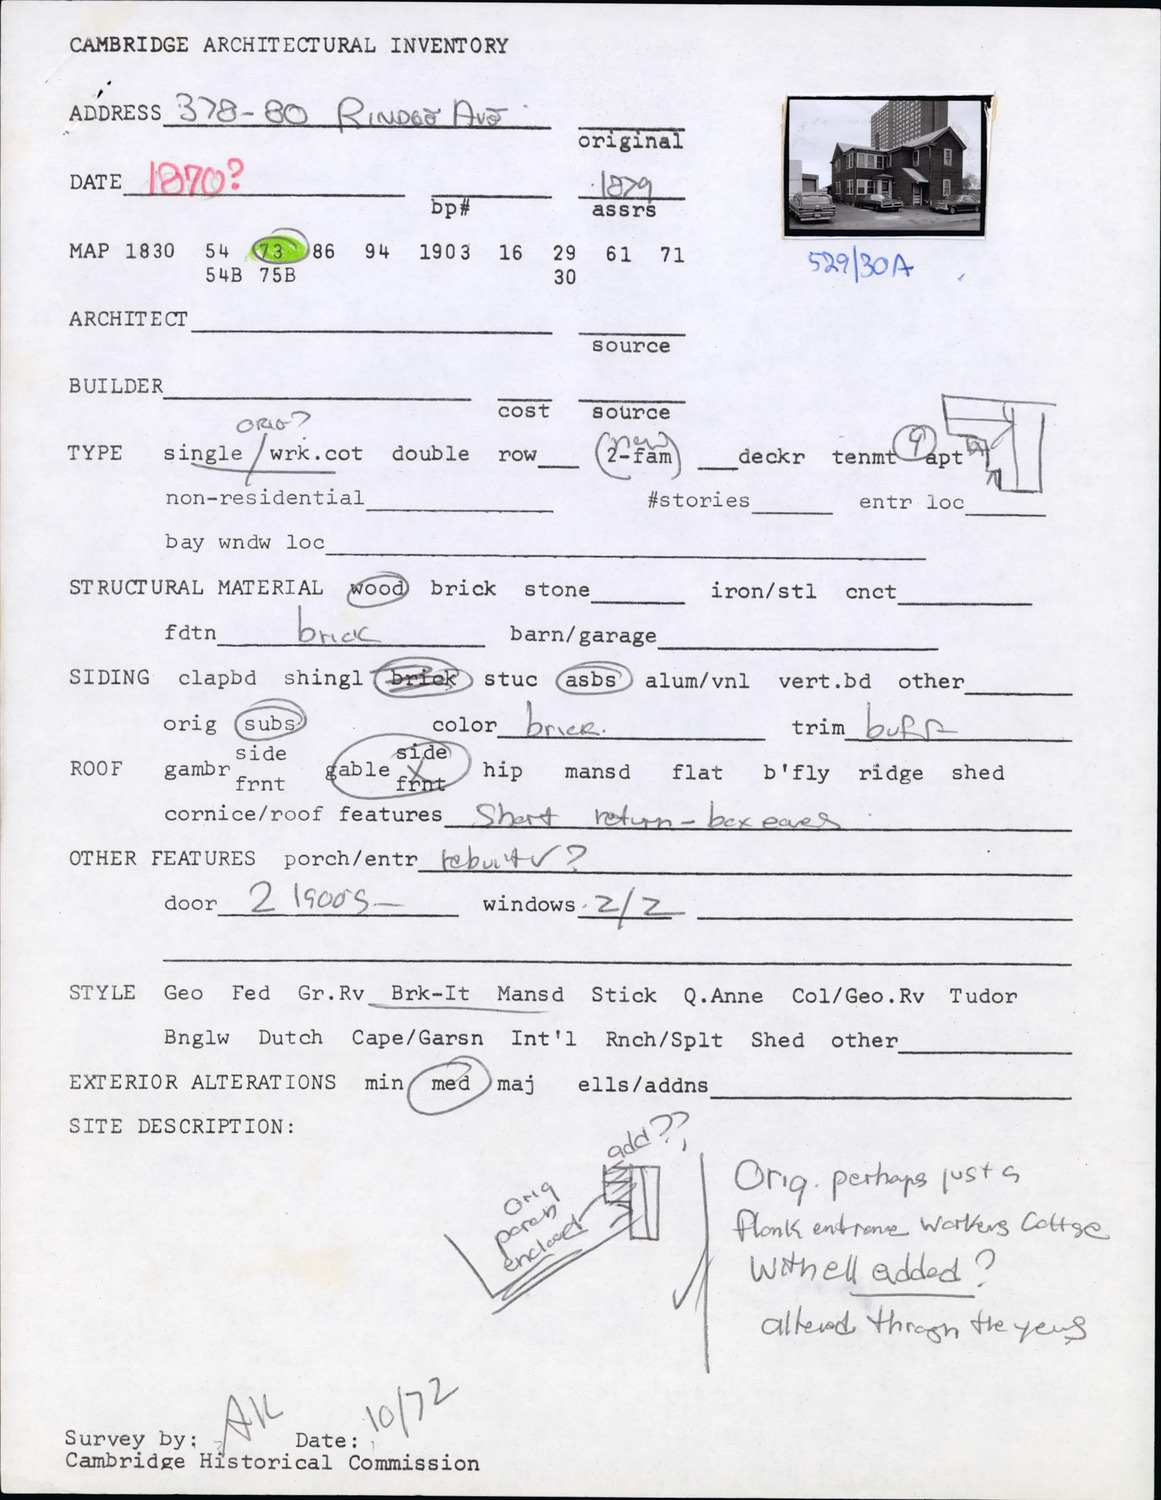 CAMBRIDGE ARCHITECTURAL INVENTORY
ADDRESS 378-80 RINDGE AVE
original
DATE 1870? 1879
bp# assrs
MAP 1830 54 73 86 94 1903 16 29 61 71
54B 75B 30
529/30A
ARCHITECT
source
BUILDER
cost source
ORIG? (new)
TYPE single / wrk.cot double row 2-fam deckr tenmt apt
non-residential #stories entr loc
bay wndw loc
STRUCTURAL MATERIAL wood brick stone iron/stl cnct
fdtn brick barn/garage
SIDING clapbd shingl brick stuc asbs alum/vnl vert.bd other
orig subs color brick. trim buff
side side
ROOF gambr gable hip mansd flat b'fly ridge shed
frnt frnt
cornice/roof features Short return - box eaves
OTHER FEATURES porch/entr rebuilt ✓?
door 2 1900s windows 2/2
STYLE Geo Fed Gr.Rv Brk-It Mansd Stick Q.Anne Col/Geo.Rv Tudor
Bnglw Dutch Cape/Garsn Int'l Rnch/Splt Shed other
EXTERIOR ALTERATIONS min med maj ells/addns
SITE DESCRIPTION:
add??
Orig
porch
enclosed
Orig. perhaps just a
flank entrance workers Cottge
with ell added?
altered through the years
Survey by: AK Date: 10/72
Cambridge Historical Commission